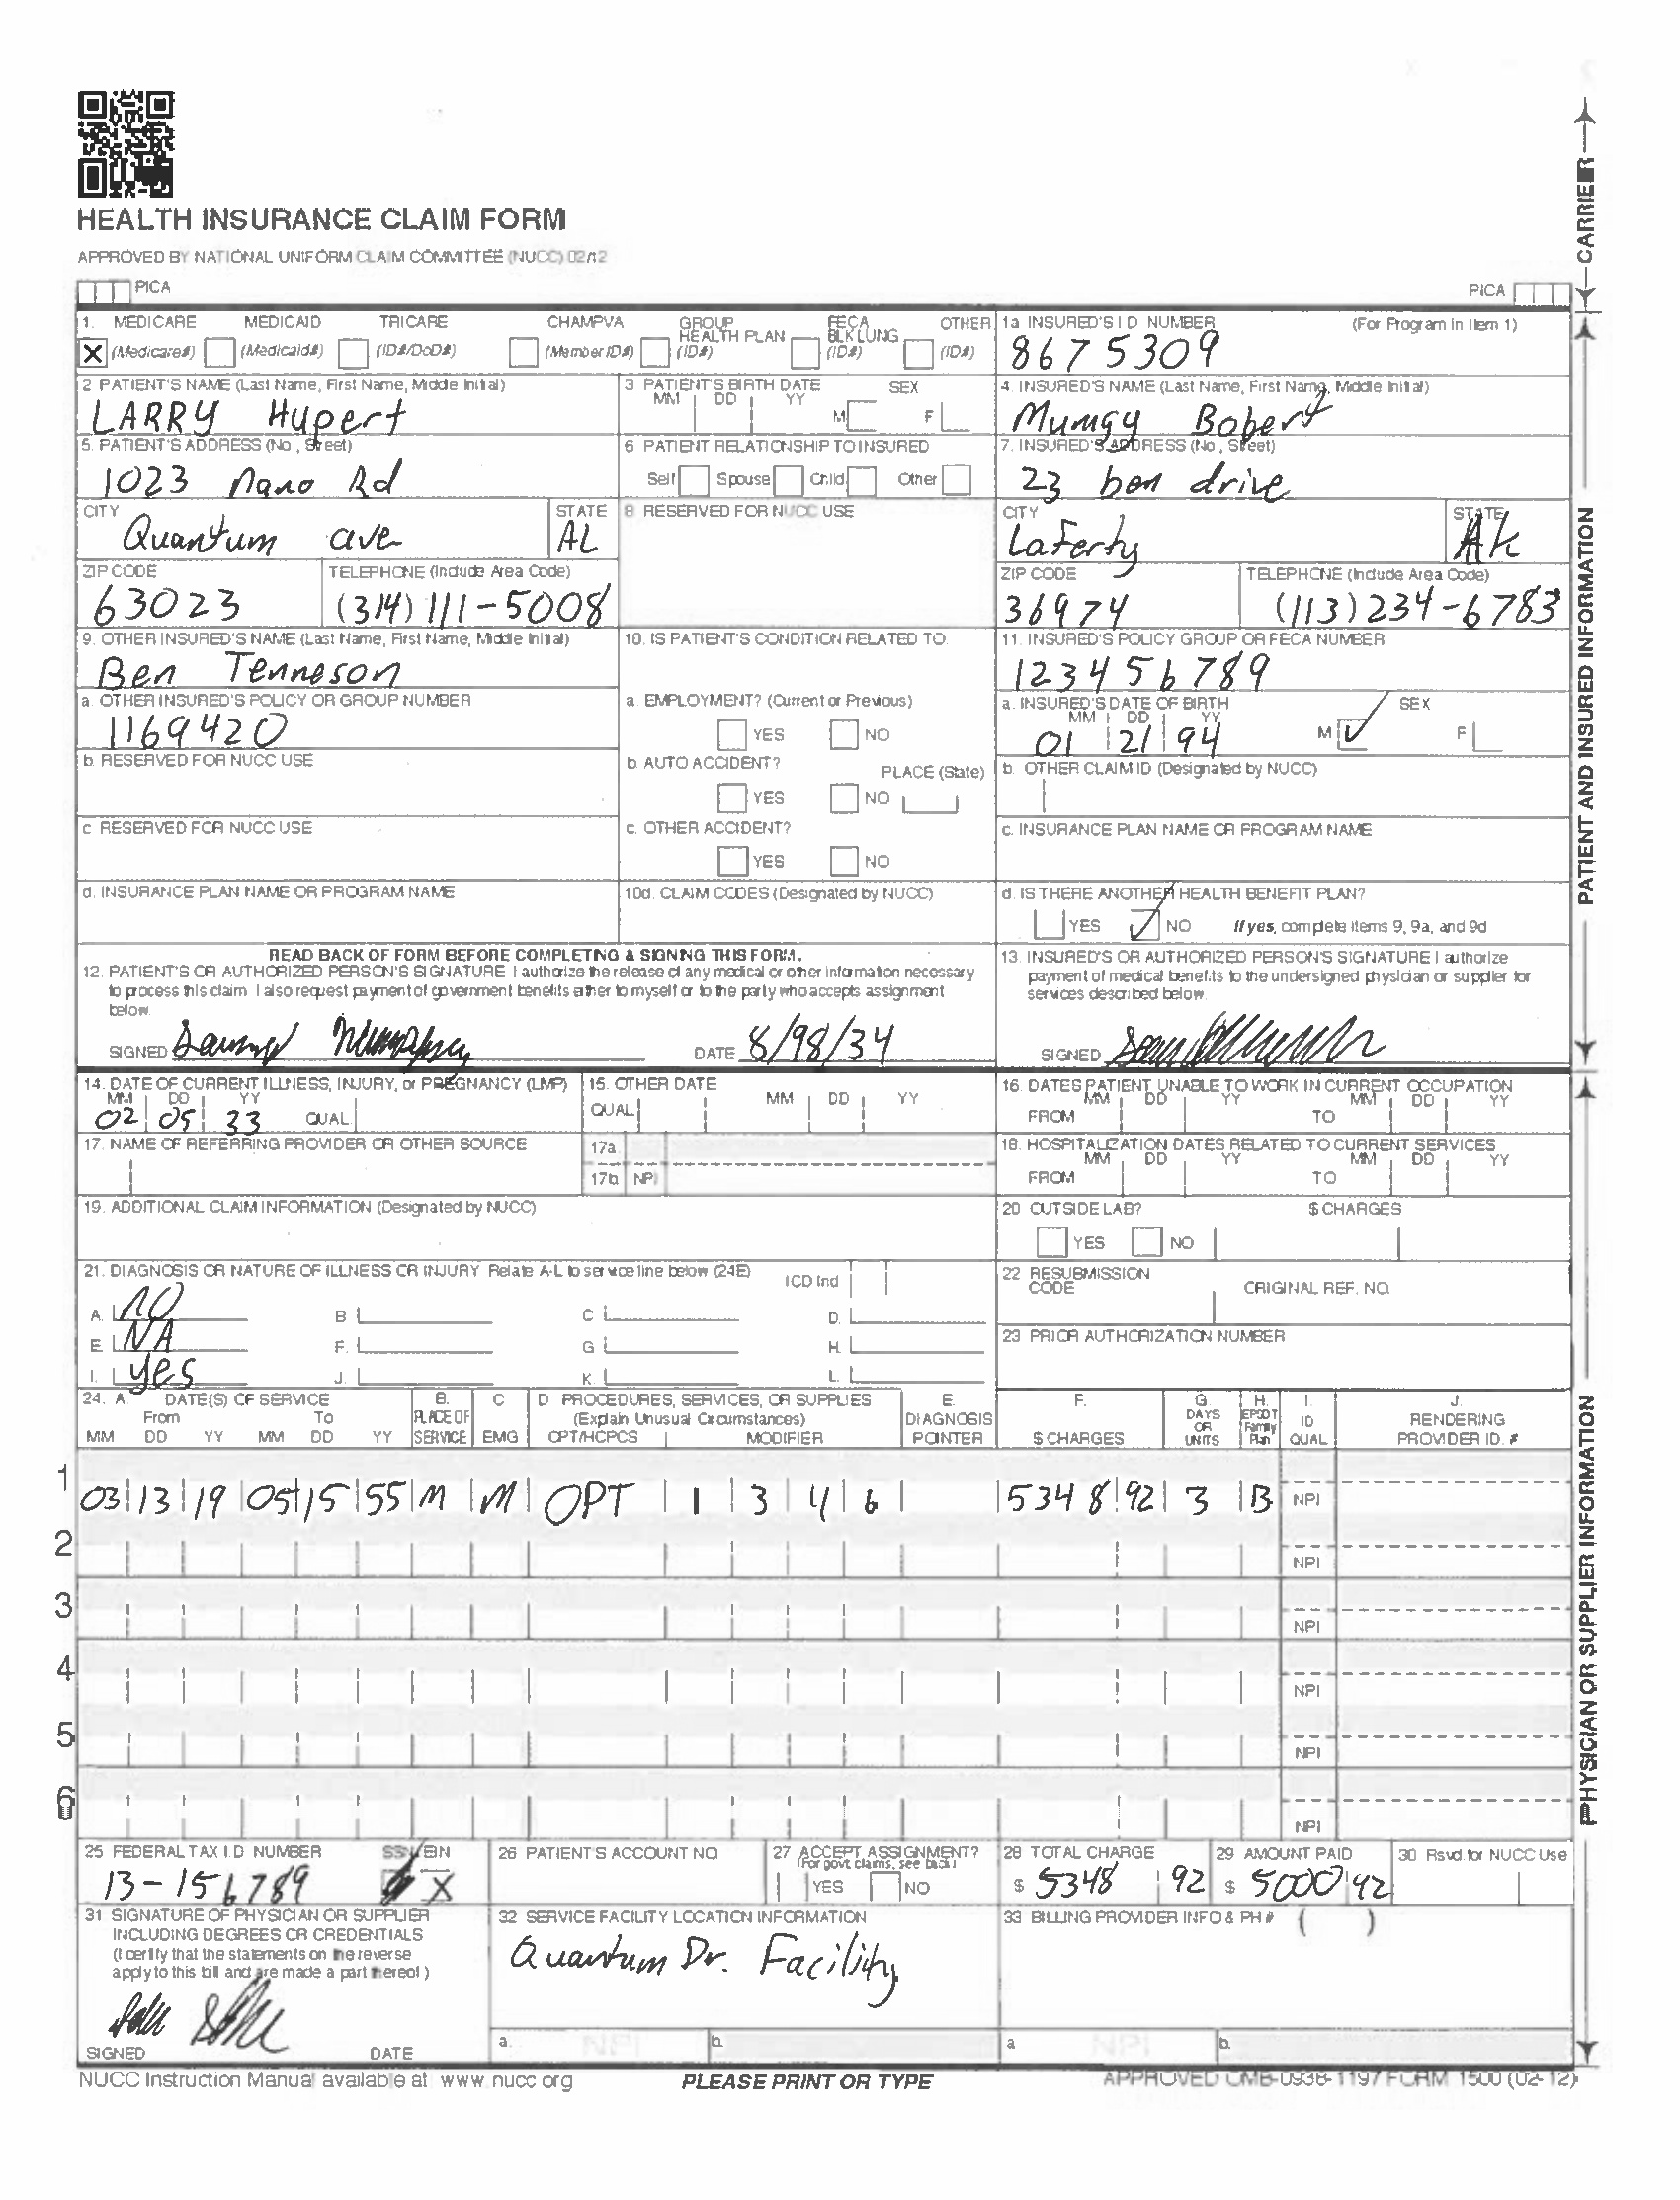 HEALTH INSURANCE CLAIM FORM
APPROVED BY NATIONAL UNIFORM CLAIM COMMITTEE (NUCC) 02/12
PICA PICA
CARRIER
1. MEDICARE MEDICAID TRICARE CHAMPVA GROUP HEALTH PLAN FECA BLK LUNG OTHER
X (Medicare#) (Medicaid#) (ID#/DoD#) (Member ID#) (ID#) (ID#) (ID#)
1a INSURED'S I D NUMBER (For Program in Item 1)
8675309
2 PATIENT'S NAME (Last Name, First Name, Middle Initial)
LARRY Hupert
3 PATIENT'S BIRTH DATE SEX
MM DD YY M F
4. INSURED'S NAME (Last Name, First Name, Middle Initial)
Mumgy Bobert
5. PATIENT'S ADDRESS (No, Street)
1023 Nano Rd
6 PATIENT RELATIONSHIP TO INSURED
Self Spouse Child Other
7. INSURED'S ADDRESS (No, Street)
23 ben drive
CITY STATE
Quantum ave AL
8 RESERVED FOR NUCC USE
CITY STATE
Laferty AK
ZIP CODE TELEPHONE (Include Area Code)
63023 (314) 111-5008
ZIP CODE TELEPHONE (Include Area Code)
36974 (113) 234-6783
9. OTHER INSURED'S NAME (Last Name, First Name, Middle Initial)
Ben Tenneson
10. IS PATIENT'S CONDITION RELATED TO
11. INSURED'S POLICY GROUP OR FECA NUMBER
123456789
a. OTHER INSURED'S POLICY OR GROUP NUMBER
1169420
a. EMPLOYMENT? (Current or Previous)
YES NO
a. INSURED'S DATE OF BIRTH SEX
MM DD YY
01 21 94 M F
b. RESERVED FOR NUCC USE
b. AUTO ACCIDENT? PLACE (State)
YES NO
b. OTHER CLAIM ID (Designated by NUCC)
c. RESERVED FOR NUCC USE
c. OTHER ACCIDENT?
YES NO
c. INSURANCE PLAN NAME OR PROGRAM NAME
d. INSURANCE PLAN NAME OR PROGRAM NAME
10d. CLAIM CODES (Designated by NUCC)
d. IS THERE ANOTHER HEALTH BENEFIT PLAN?
YES NO If yes, complete items 9, 9a, and 9d
PATIENT AND INSURED INFORMATION
READ BACK OF FORM BEFORE COMPLETING & SIGNING THIS FORM.
12. PATIENT'S OR AUTHORIZED PERSON'S SIGNATURE I authorize the release of any medical or other information necessary
to process this claim I also request payment of government benefits either to myself or to the party who accepts assignment
below.
SIGNED DATE 8/98/34
13. INSURED'S OR AUTHORIZED PERSON'S SIGNATURE I authorize
payment of medical benefits to the undersigned physician or supplier for
services described below.
SIGNED
14. DATE OF CURRENT ILLNESS, INJURY, or PREGNANCY (LMP)
MM DD YY
02 05 33 QUAL
15. OTHER DATE
QUAL MM DD YY
16. DATES PATIENT UNABLE TO WORK IN CURRENT OCCUPATION
MM DD YY MM DD YY
FROM TO
17. NAME OF REFERRING PROVIDER OR OTHER SOURCE
17a
17b NPI
18. HOSPITALIZATION DATES RELATED TO CURRENT SERVICES
MM DD YY MM DD YY
FROM TO
19. ADDITIONAL CLAIM INFORMATION (Designated by NUCC)
20 OUTSIDE LAB? $ CHARGES
YES NO
21. DIAGNOSIS OR NATURE OF ILLNESS OR INJURY Relate A-L to service line below (24E) ICD Ind
A. NO B. C. D.
E. NA F. G. H.
I. yes J. K. L.
22 RESUBMISSION
CODE ORIGINAL REF. NO.
23 PRIOR AUTHORIZATION NUMBER
24. A. DATE(S) OF SERVICE B. C D PROCEDURES, SERVICES, OR SUPPLIES E. F. G. H. I. J.
From To PLACE OF (Explain Unusual Circumstances) DIAGNOSIS DAYS OR EPSDT Family ID RENDERING
MM DD YY MM DD YY SERVICE EMG CPT/HCPCS MODIFIER POINTER $ CHARGES UNITS Plan QUAL PROVIDER ID. #
1 03 13 19 05 15 55 M M OPT 1 3 4 6 5348 92 3 B NPI
2 NPI
3 NPI
4 NPI
5 NPI
6 NPI
PHYSICIAN OR SUPPLIER INFORMATION
25 FEDERAL TAX I.D NUMBER SSN EIN
13-156789 X
26 PATIENT'S ACCOUNT NO
27 ACCEPT ASSIGNMENT?
(For govt. claims, see back)
YES NO
28 TOTAL CHARGE
$ 5348 92
29 AMOUNT PAID
$ 5000 92
30 Rsvd for NUCC Use
31 SIGNATURE OF PHYSICIAN OR SUPPLIER
INCLUDING DEGREES OR CREDENTIALS
(I certify that the statements on the reverse
apply to this bill and are made a part thereof)
SIGNED DATE
32 SERVICE FACILITY LOCATION INFORMATION
Quantum Dr. Facility
a. NPI b.
33 BILLING PROVIDER INFO & PH # ( )
a NPI b.
NUCC Instruction Manual available at www nucc org PLEASE PRINT OR TYPE APPROVED OMB-0938-1197 FORM 1500 (02-12)